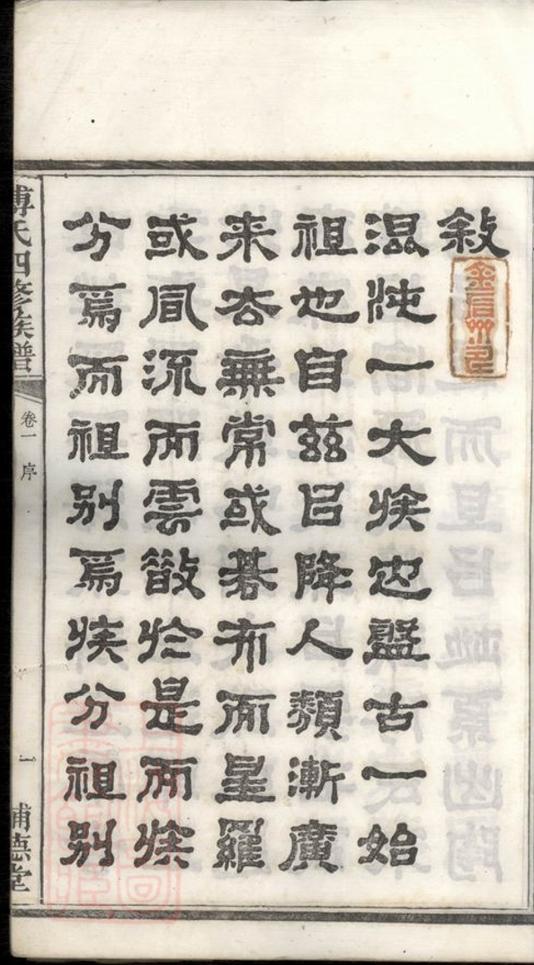 敘
混沌一大族也盤古一始
祖也自茲㠯降人類漸廣
来去無常或碁布而星羅
或風流而雲散於是而族
分焉而祖別焉族分祖別
傅氏四修族譜
卷一 序
一
浦德堂